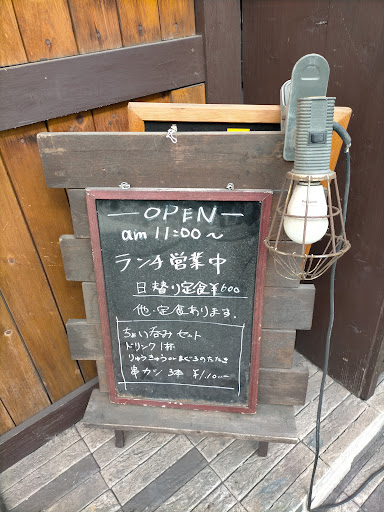 — OPEN —
am 11:00〜
ランチ営業中
日替り定食¥600
他、定食あります。
ちょい呑みセット
ドリンク1杯
りゅうきゅうorまぐろのたたき
串カツ 3本 ¥1,100-